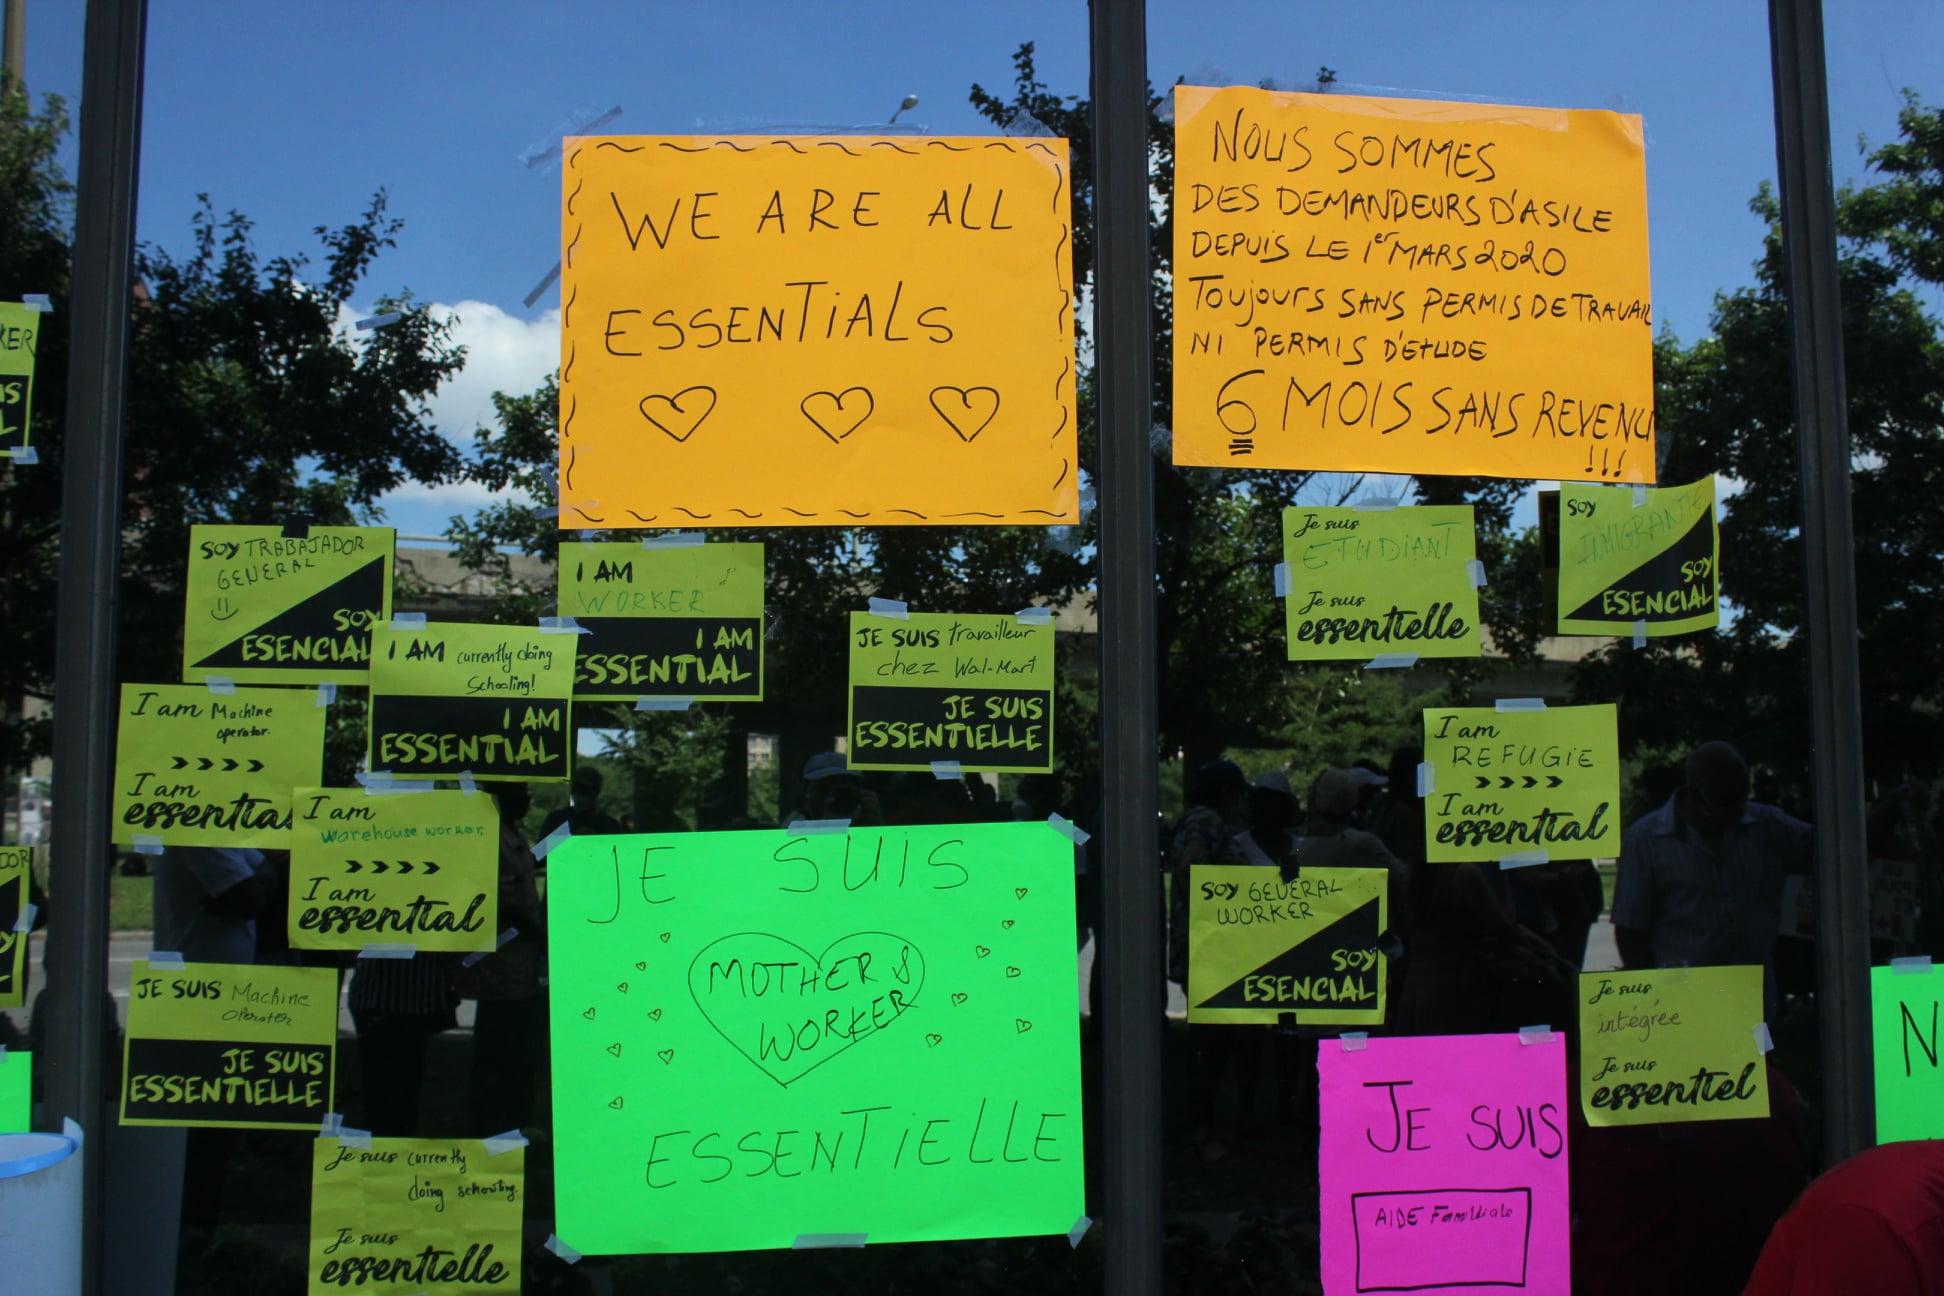 WE ARE ALL
ESSENTIALS
NOUS SOMMES
DES DEMANDEURS D'ASILE
DEPUIS LE 1er MARS 2020
TOUJOURS SANS PERMIS DE TRAVAIL
NI PERMIS D'ETUDE
6 MOIS SANS REVENU
!!!
KER
IS
L
SOY TRABAJADOR
GENERAL
SOY
ESENCIAL
I AM
WORKER
I AM
ESSENTIAL
I AM currently doing
Schooling!
I AM
ESSENTIAL
JE SUIS travailleur
chez Wal-Mart
JE SUIS
ESSENTIELLE
Je suis
ETUDIANT
Je suis
essentielle
SOY
INMIGRANTE
SOY
ESENCIAL
I am Machine
operator.
>>>>
I am
essential
I am
Warehouse worker.
>>>>
I am
essential
I am
REFUGIE
>>>>
I am
essential
DOR
Y
L
JE SUIS
MOTHER &
WORKER
ESSENTIELLE
SOY GENERAL
WORKER
SOY
ESENCIAL
JE SUIS Machine
Operator
JE SUIS
ESSENTIELLE
Je suis
intégrée
Je suis
essentiel
N
JE SUIS
AIDE Familiale
Je suis currently
doing schooling.
Je suis
essentielle